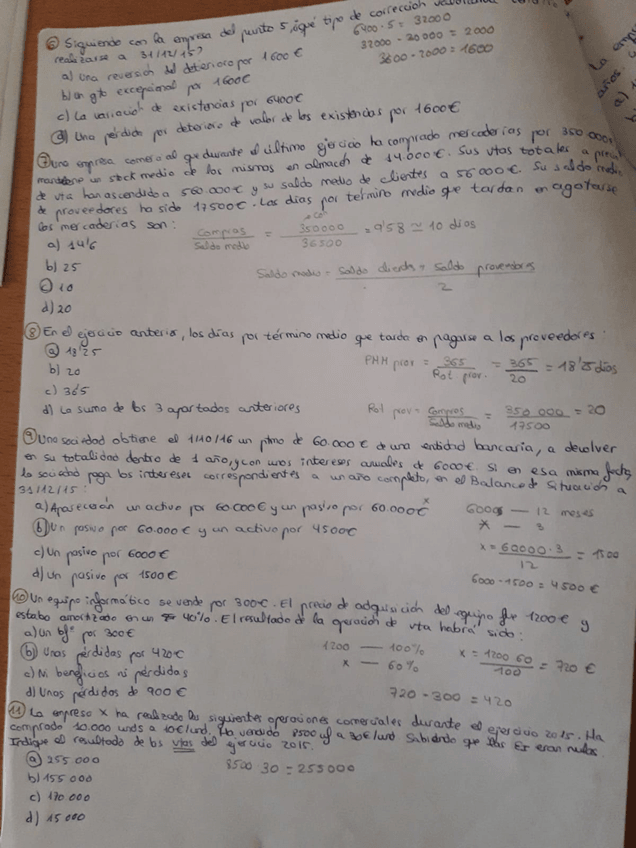 ⑥ Siguiendo con la empresa del punto 5, ¿qué tipo de corrección
realizarse a 31/12/15?
6400 · 5 = 32000
32000 - 30000 = 2000
3600 - 2000 = 1600
a) Una reversión del deterioro por 1600€
b) un gto excepcional por 1600€
c) La variación de existencias por 6400€
d) Una pérdida por deterioro de valor de las existencias por 1600€
⑦ Una empresa comercial que durante el último ejercicio ha comprado mercaderías por 350.000
mantiene un stock medio de las mismas en almacén de 14.000€. Sus vtas totales a precio
de vta han ascendido a 560.000€ y su saldo medio de clientes a 56000€. Su saldo medio
de proveedores ha sido 17500€. Los días por término medio que tardan en agotarse
las mercaderías son:
Compras / Saldo medio = 350000 / 36500 = 9'58 ≃ 10 días
a) 14'6
b) 25
c) 10
d) 20
Saldo medio = Saldo clientes + Saldo proveedores / 2
⑧ En el ejercicio anterior, los días por término medio que tarda en pagarse a los proveedores:
a) 18'25
b) 20
c) 365
d) La suma de los 3 apartados anteriores
PMM prov = 365 / Rot prov. = 365 / 20 = 18'25 días
Rot prov = Compras / Saldo medio = 350 000 / 17500 = 20
⑨ Una sociedad obtiene el 1/10/16 un ptmo de 60.000€ de una entidad bancaria, a devolver
en su totalidad dentro de 1 año, y con unos intereses anuales de 6000€. Si en esa misma fecha,
la sociedad paga los intereses correspondientes a un año completo, en el Balance de Situación a
31/12/15:
a) Aparecerán un activo por 60.000€ y un pasivo por 60.000€
b) Un pasivo por 60.000€ y un activo por 4500€
c) Un pasivo por 6000€
d) Un pasivo por 1500€
6000 — 12 meses
x — 3
x = 60000 · 3 / 12 = 1500
6000 - 1500 = 4500€
⑩ Un equipo informático se vende por 300€. El precio de adquisición del equipo fue 1200€ y
estaba amortizado en un 40%. El resultado de la operación de vta habrá sido:
a) Un bfº por 300€
b) Unas pérdidas por 420€
c) Ni beneficios ni pérdidas
d) Unas pérdidas de 900€
1200 — 100%
x — 60%
x = 1200 60 / 100 = 720€
720 - 300 = 420
⑪ La empresa X ha realizado las siguientes operaciones comerciales durante el ejercicio 2015. Ha
comprado 10.000 unds a 10€/und. Ha vendido 8500 a 30€/und Sabiendo que las Ei eran nulas.
Indique el resultado de las vtas del ejercicio 2015.
a) 255 000
b) 155 000
c) 170.000
d) 15 000
8500 30 = 255000